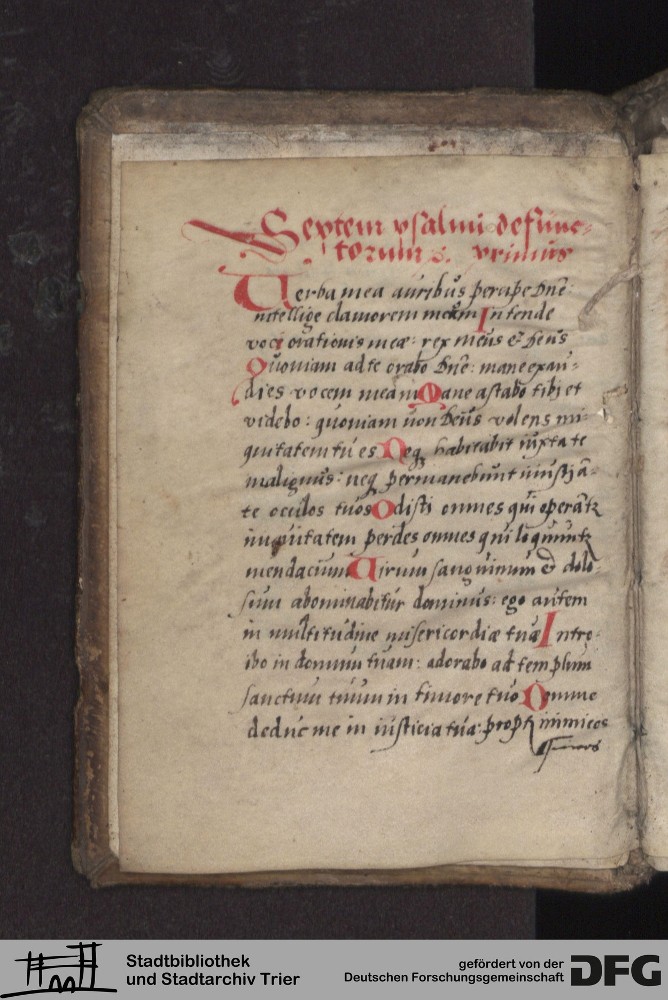 Septem psalmi defunc-
torum. primus
Verba mea auribus percipe dne:
intellige clamorem meum Intende
voci orationis meæ: rex meus & deus
Quoniam ad te orabo dne: mane exau-
dies vocem meam Mane astabo tibi et
videbo: quoniam non deus volens ini-
quitatem tu es Neq habitabit iuxta te
malignus: neq permanebunt iniusti a-
te oculos tuos Odisti omnes qui operãt
iniquitatem perdes omnes qui loquunt
mendacium Virum sanguinum & dolo-
sum abominabitur dominus: ego autem
in multitudine misericordiæ tuæ Intro-
ibo in domum tuam: adorabo ad templum
sanctum tuum in timore tuo Domine
deduc me in iusticia tua: propt inimicos
Stadtbibliothek
und Stadtarchiv Trier
gefördert von der
Deutschen Forschungsgemeinschaft
DFG